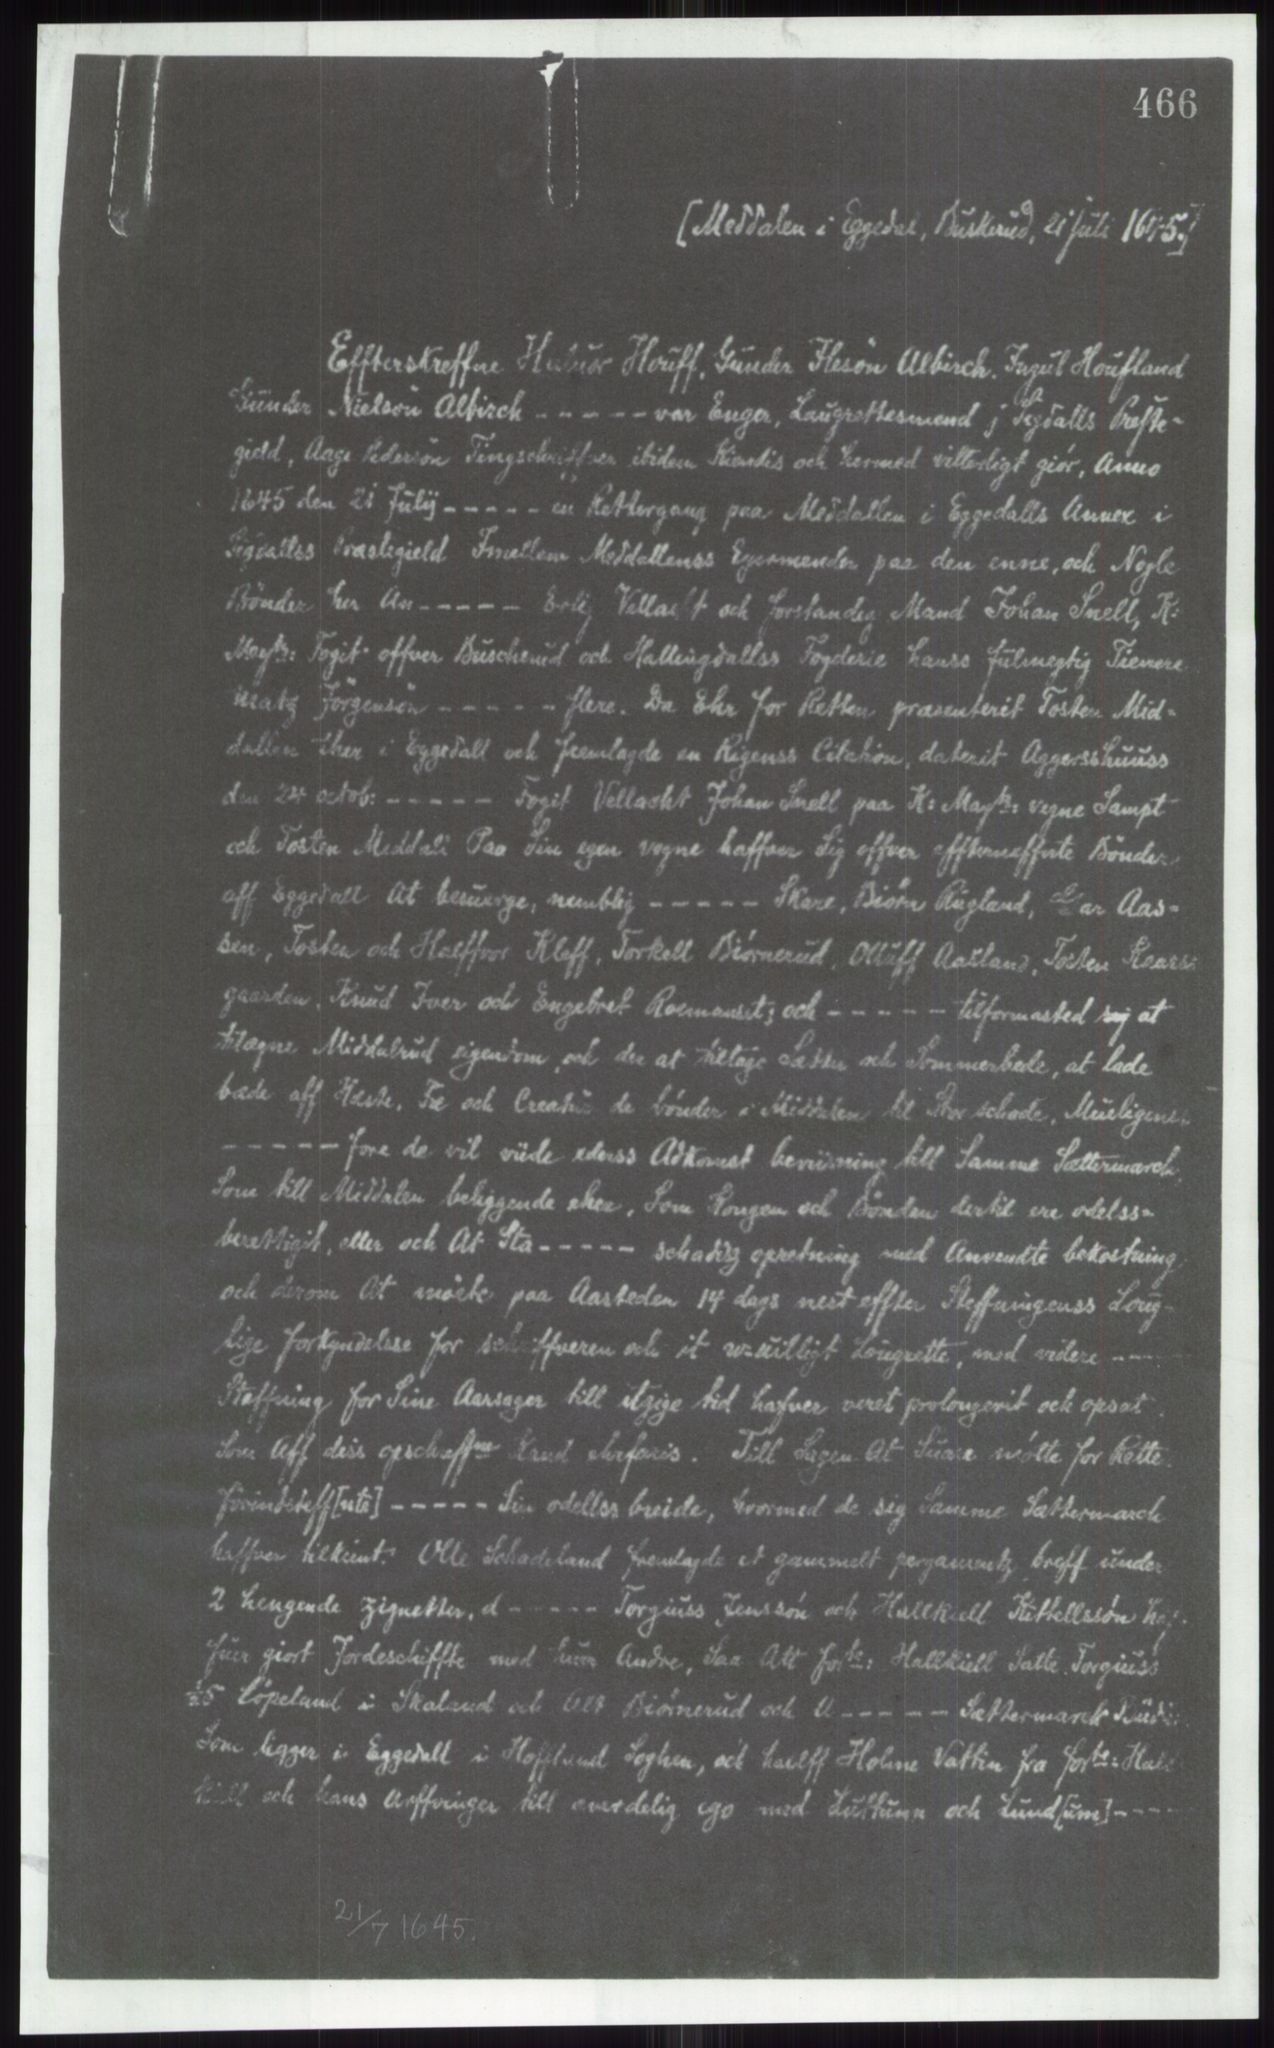 466
[Meddalen i Eggedal, Buskerud, 21 juli 1645.]
Effterskreffne Halvor Houff, Gunder Iflesön Albirch, Ingul Houfland
Gunder Nielsön Albirch - - - - - vor Enger, Laugrettesmend j Sigdalls Preste-
gield, Aage Pedersön Tingschriffver ibidem Kiendis och hermed vitterligt giör, Anno
1645 den 21 Julij - - - - - en Rettergang paa Meddallen i Eggedalls Annex i
Sigdallss Præstegield Imellem Meddallenss Eyermender paa den enne, och Nogle
Bönder her An - - - - - Erlig Vellacht och forstandig Mand Johan Snell, K:
Maytz: Fogit offver Buscherud och Hallingdallss Fogderie hanss fulmegtig Tienere
Matz Jörgensön - - - - - flere. Da Ehr for Retten præsenterit Tosten Mid-
dallen Iher i Eggedall och fremlagde en Rigenss Citation, daterit Aggersshuuss
den 24 octob: - - - - - Fogit Vellacht Johan Snell paa K: Maytz: vegne Sampt
och Tosten Meddall Paa Sin egen vegne haffver Sig offver effterneffnte Bönder
aff Eggedall At besuerge, nemblig - - - - - Skare, Biörn Rugland, ar Aas-
sen, Tosten och Halffvor Kleff, Torkell Biörnerud, Olluff Aasland, Tosten
gaarden, Knud Iver och Engebret Roemanset; och - - - - - tilformasted sig at
tilegne Middalrud eigendom, och der at tiltage Sætter och Sommerbede, at lade
bede aff Heste, Fæ och Creatur de bönder i Middalen til Stor schade, Mueligens
- - - - - fore de vil vide ederss Adkomst beviisning till Samme Sættermarch
Som till Middalen beliggende eher, Som Kongen och Bönden dertil ere odelss-
berettigit, eller och At Sta - - - - - schadiss opretning med Anvendte bekostning
och derom At möete paa Aasteden 14 dags nest effter Steffningenss Loug-
lige forkyndelse for schriffveren och it uvuilligt Lougrette, med videre - - - -
Steffning for Sine Aarsager till itzige tid hafver veret prolongerit och opsat
Som Aff diss opschreffne Kand erfaris. Till Sagen At Suare mötte for Rette
forindsteff[nte] - - - - - Sin odellss breide, hvormed de sig Samme Sættermarch
haffver tilkient. Olle Schadeland fremlagde et gammelt pergamentz breff under
2 hengende Zignetter, d - - - - - Torgiuss Jenssön och Hallkiell Kittellssön haf-
fuer giort Jordeschiffte med huer Andre, Saa Att forte: Hallkiell Satte Torgiuss
Löpeland i Skaland och Biörnerud och A - - - - - Sættermarck
Som ligger i Eggedall i Hoffland Soghen, och haelff Holme Vattin fra forte: Hall-
kiell och hans Arffvinger till averdelig ego med Luttunn och Lund[um] - - - -
21/7 1645.